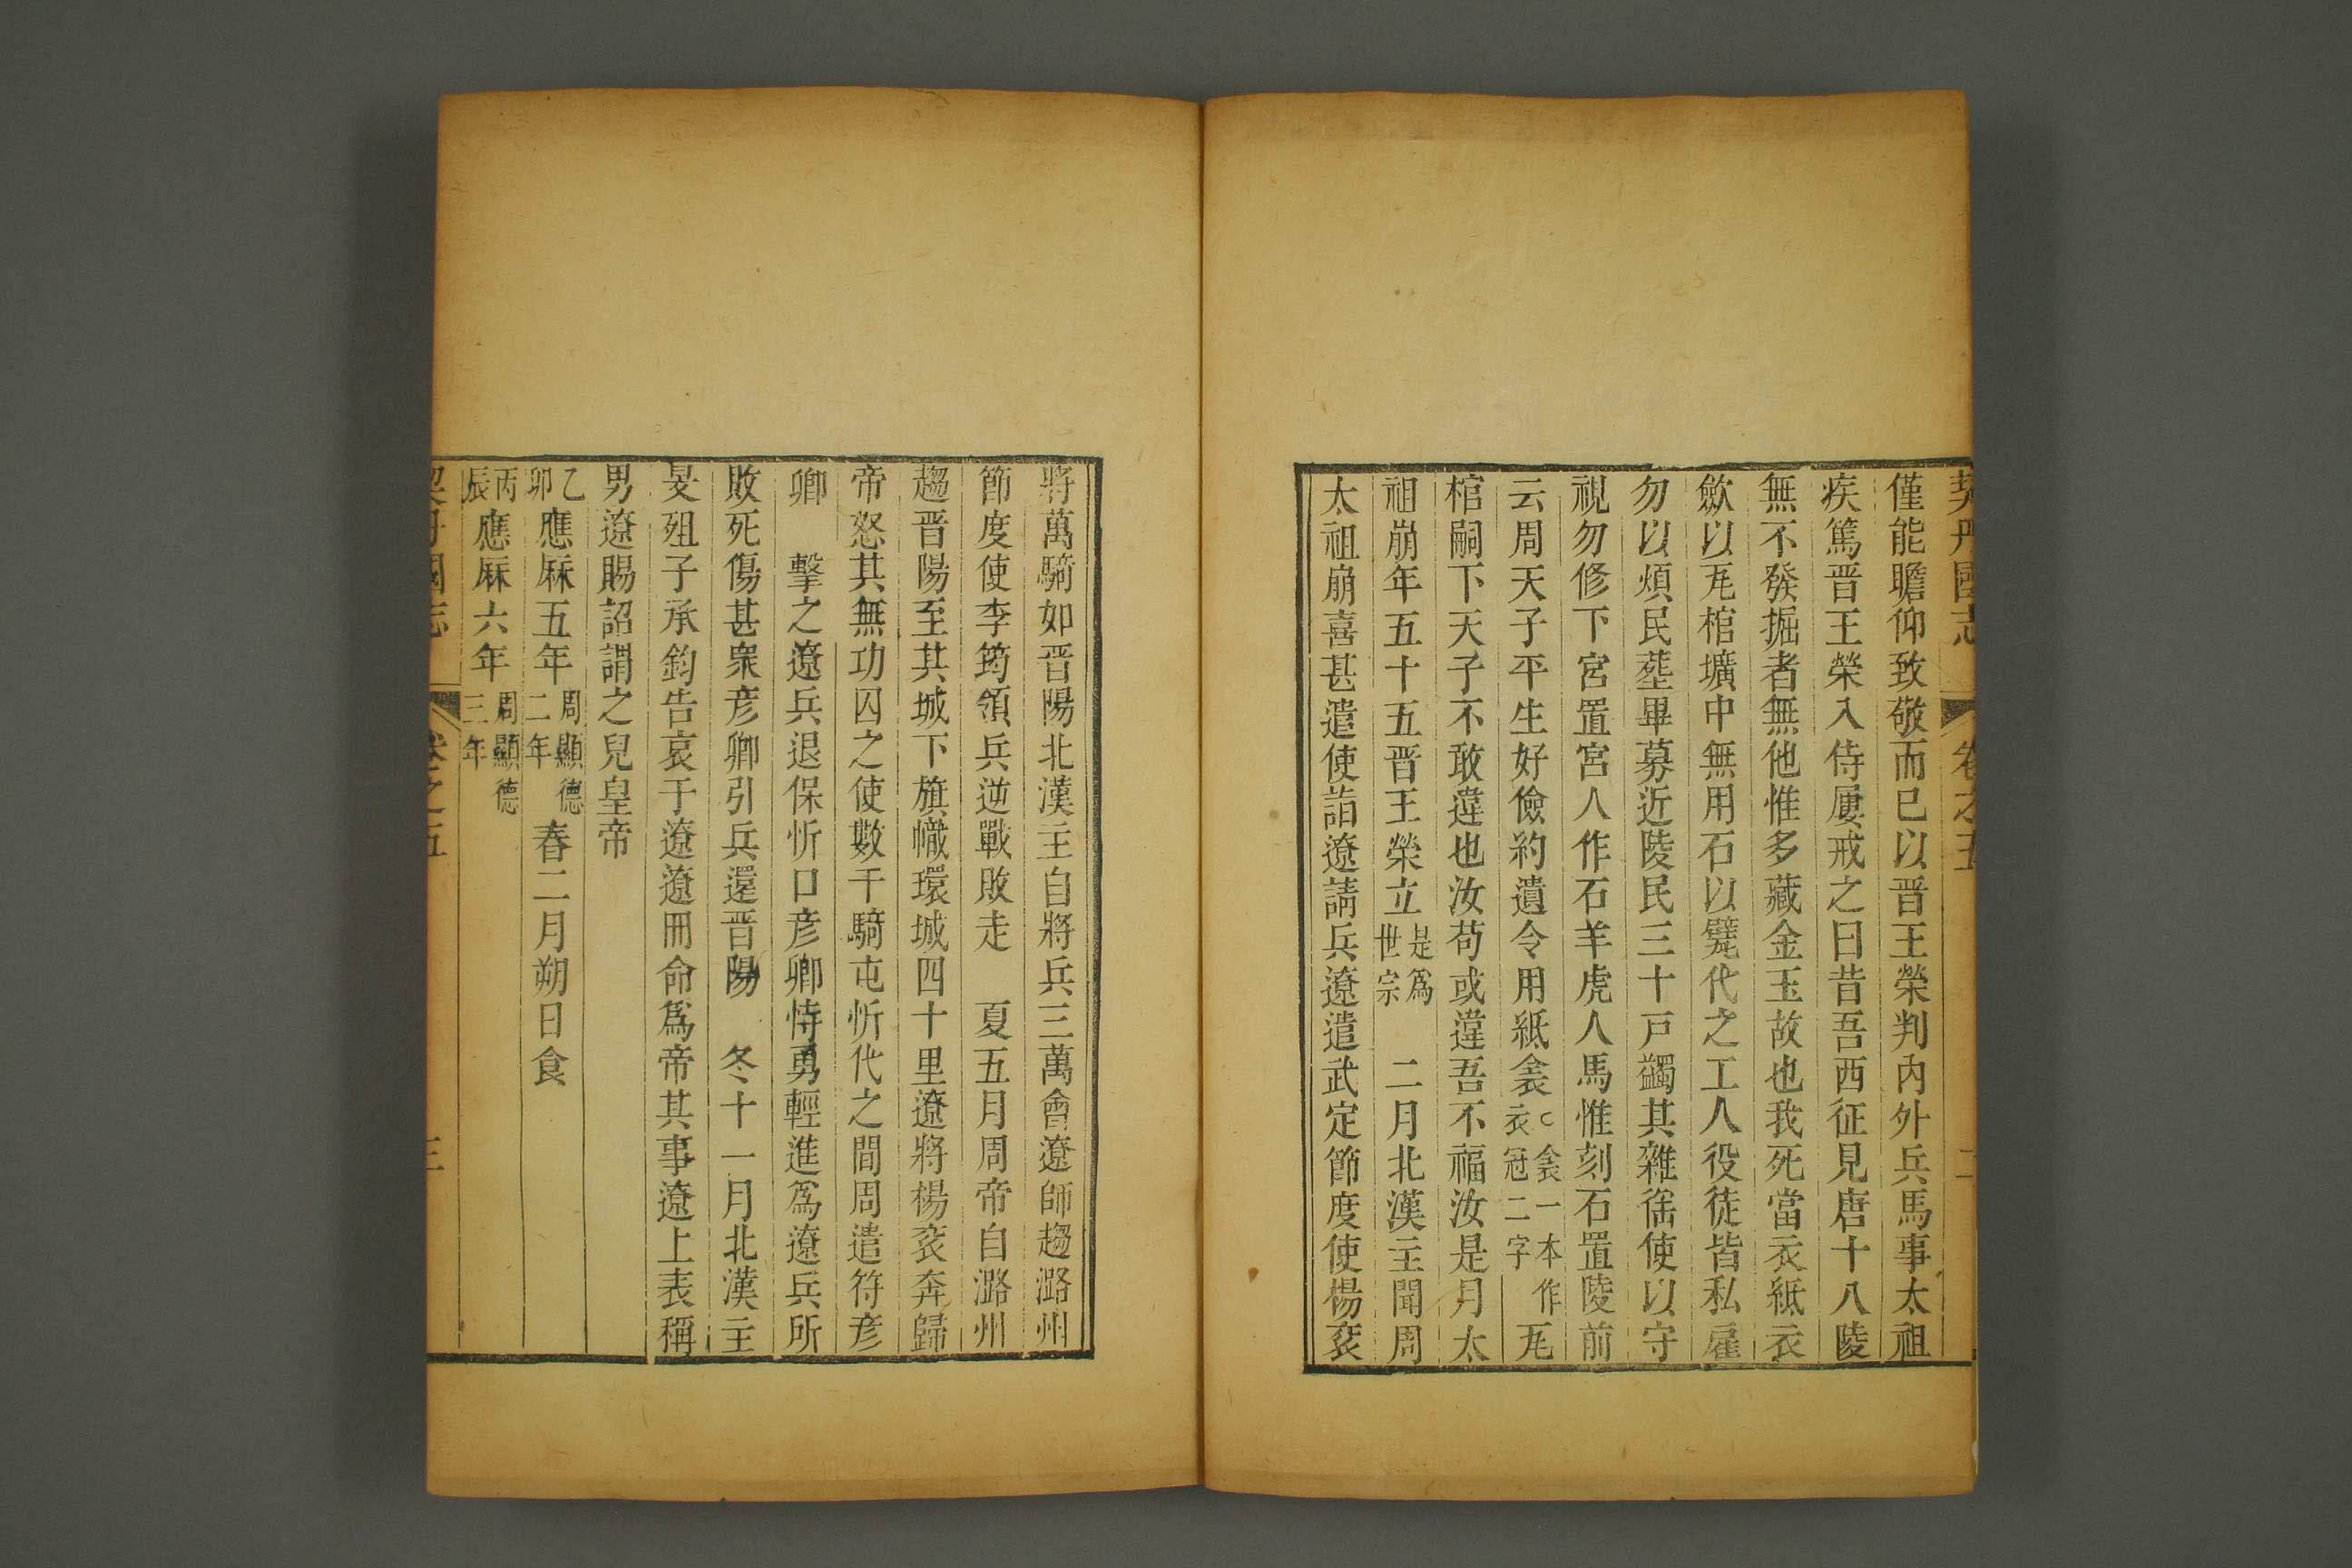 契丹國志 卷之五 二
僅能瞻仰致敬而已以晋王榮判內外兵馬事太祖
疾篤晋王榮入侍屢戒之曰昔吾西征見唐十八陵
無不發掘者無他惟多藏金玉故也我死當衣紙衣
歛以瓦棺壙中無用石以甓代之工人役徒皆私雇
勿以煩民塟畢募近陵民三十戸蠲其雜徭使以守
視勿修下宮置宮人作石羊虎人馬惟刻石置陵前
云周天子平生好儉約遺令用紙衾衾一本作衣冠二字瓦
棺嗣下天子不敢違也汝苟或違吾不福汝是月太
祖崩年五十五晋王榮立是爲世宗 二月北漢主聞周
太祖崩喜甚遣使詣遼請兵遼遣武定節度使楊衮
將萬騎如晋陽北漢主自將兵三萬會遼師趨潞州
節度使李筠領兵逆戰敗走 夏五月周帝自潞州
趨晋陽至其城下旗幟環城四十里遼將楊衮奔歸
帝怒其無功囚之使數千騎屯忻代之間周遣符彥
卿 擊之遼兵退保忻口彥卿恃勇輕進爲遼兵所
敗死傷甚衆彥卿引兵還晋陽 冬十一月北漢主
旻殂子承鈞告哀于遼遼冊命爲帝其事遼上表稱
男遼賜詔謂之兒皇帝
乙卯應厤五年周顯德二年春二月朔日食
丙辰應厤六年周顯德三年
契丹國志 卷之五 三